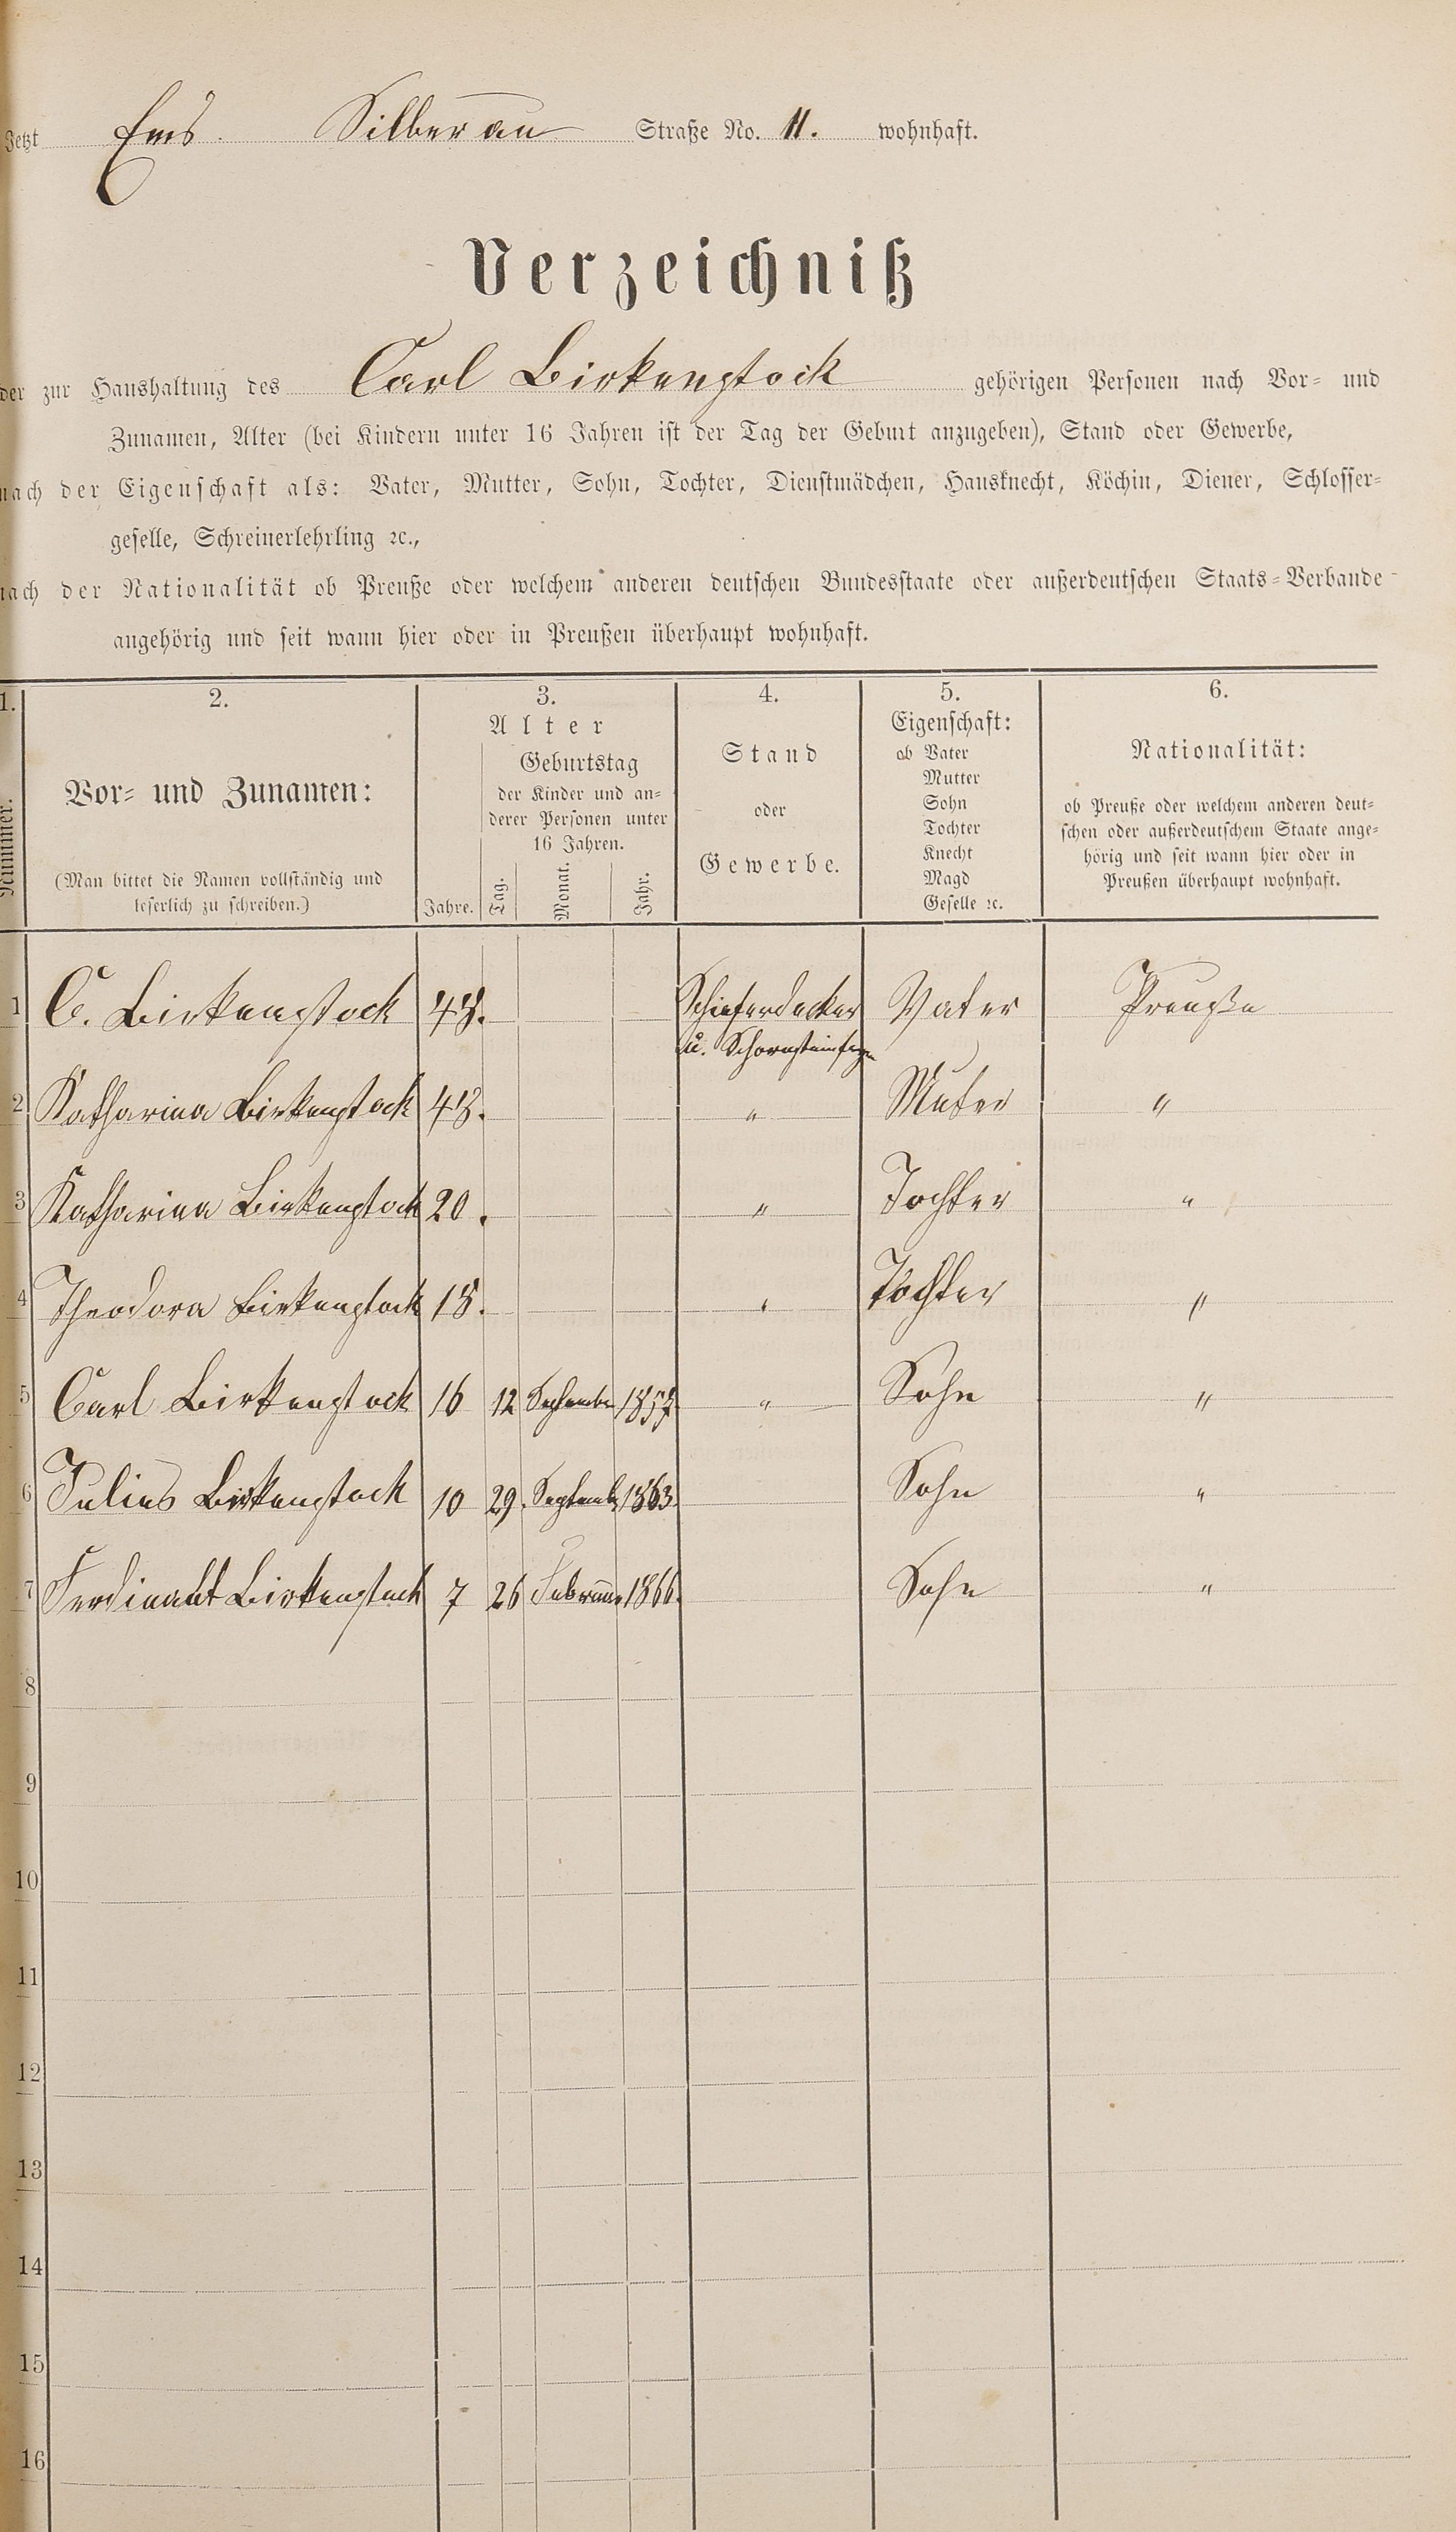 Jetzt Ems. Silberau Straße No. 11. wohnhaft.
Verzeichniß
der zur Haushaltung des Carl Birkenstock gehörigen Personen nach Vor- und
Zunamen, Alter (bei Kindern unter 16 Jahren ist der Tag der Geburt anzugeben), Stand oder Gewerbe,
nach der Eigenschaft als: Vater, Mutter, Sohn, Tochter, Dienstmädchen, Hausknecht, Köchin, Diener, Schlosser-
geselle, Schreinerlehrling ꝛc.,
nach der Nationalität ob Preuße oder welchem anderen deutschen Bundesstaate oder außerdeutschen Staats-Verbande
angehörig und seit wann hier oder in Preußen überhaupt wohnhaft.
1. 2. 3. 4. 5. 6.
Nummer.
Vor- und Zunamen:
(Man bittet die Namen vollständig und
leserlich zu schreiben.)
Alter
Jahre.
Geburtstag
der Kinder und an-
derer Personen unter
16 Jahren.
Tag. Monat. Jahr.
Stand
oder
Gewerbe.
Eigenschaft:
ob Vater
Mutter
Sohn
Tochter
Knecht
Magd
Geselle ꝛc.
Nationalität:
ob Preuße oder welchem anderen deut-
schen oder außerdeutschem Staate ange-
hörig und seit wann hier oder in
Preußen überhaupt wohnhaft.
1 C. Birkenstock Schieferdecker Vater Preuße
u. Schornsteinfeger
2 Katharina Birkenstock " Muter "
3 Katharina Birkenstock 20. " Tochter "
4 Theodora Birkenstock 18. " Tochter "
5 Carl Birkenstock 16 12 September 1857 " Sohn "
6 Julius Birkenstock 10 29. Septemb 1863. Sohn "
7 Ferdinandt Birkenstock 7 26 Februar 1866. Sohn "
8
9
10
11
12
13
14
15
16